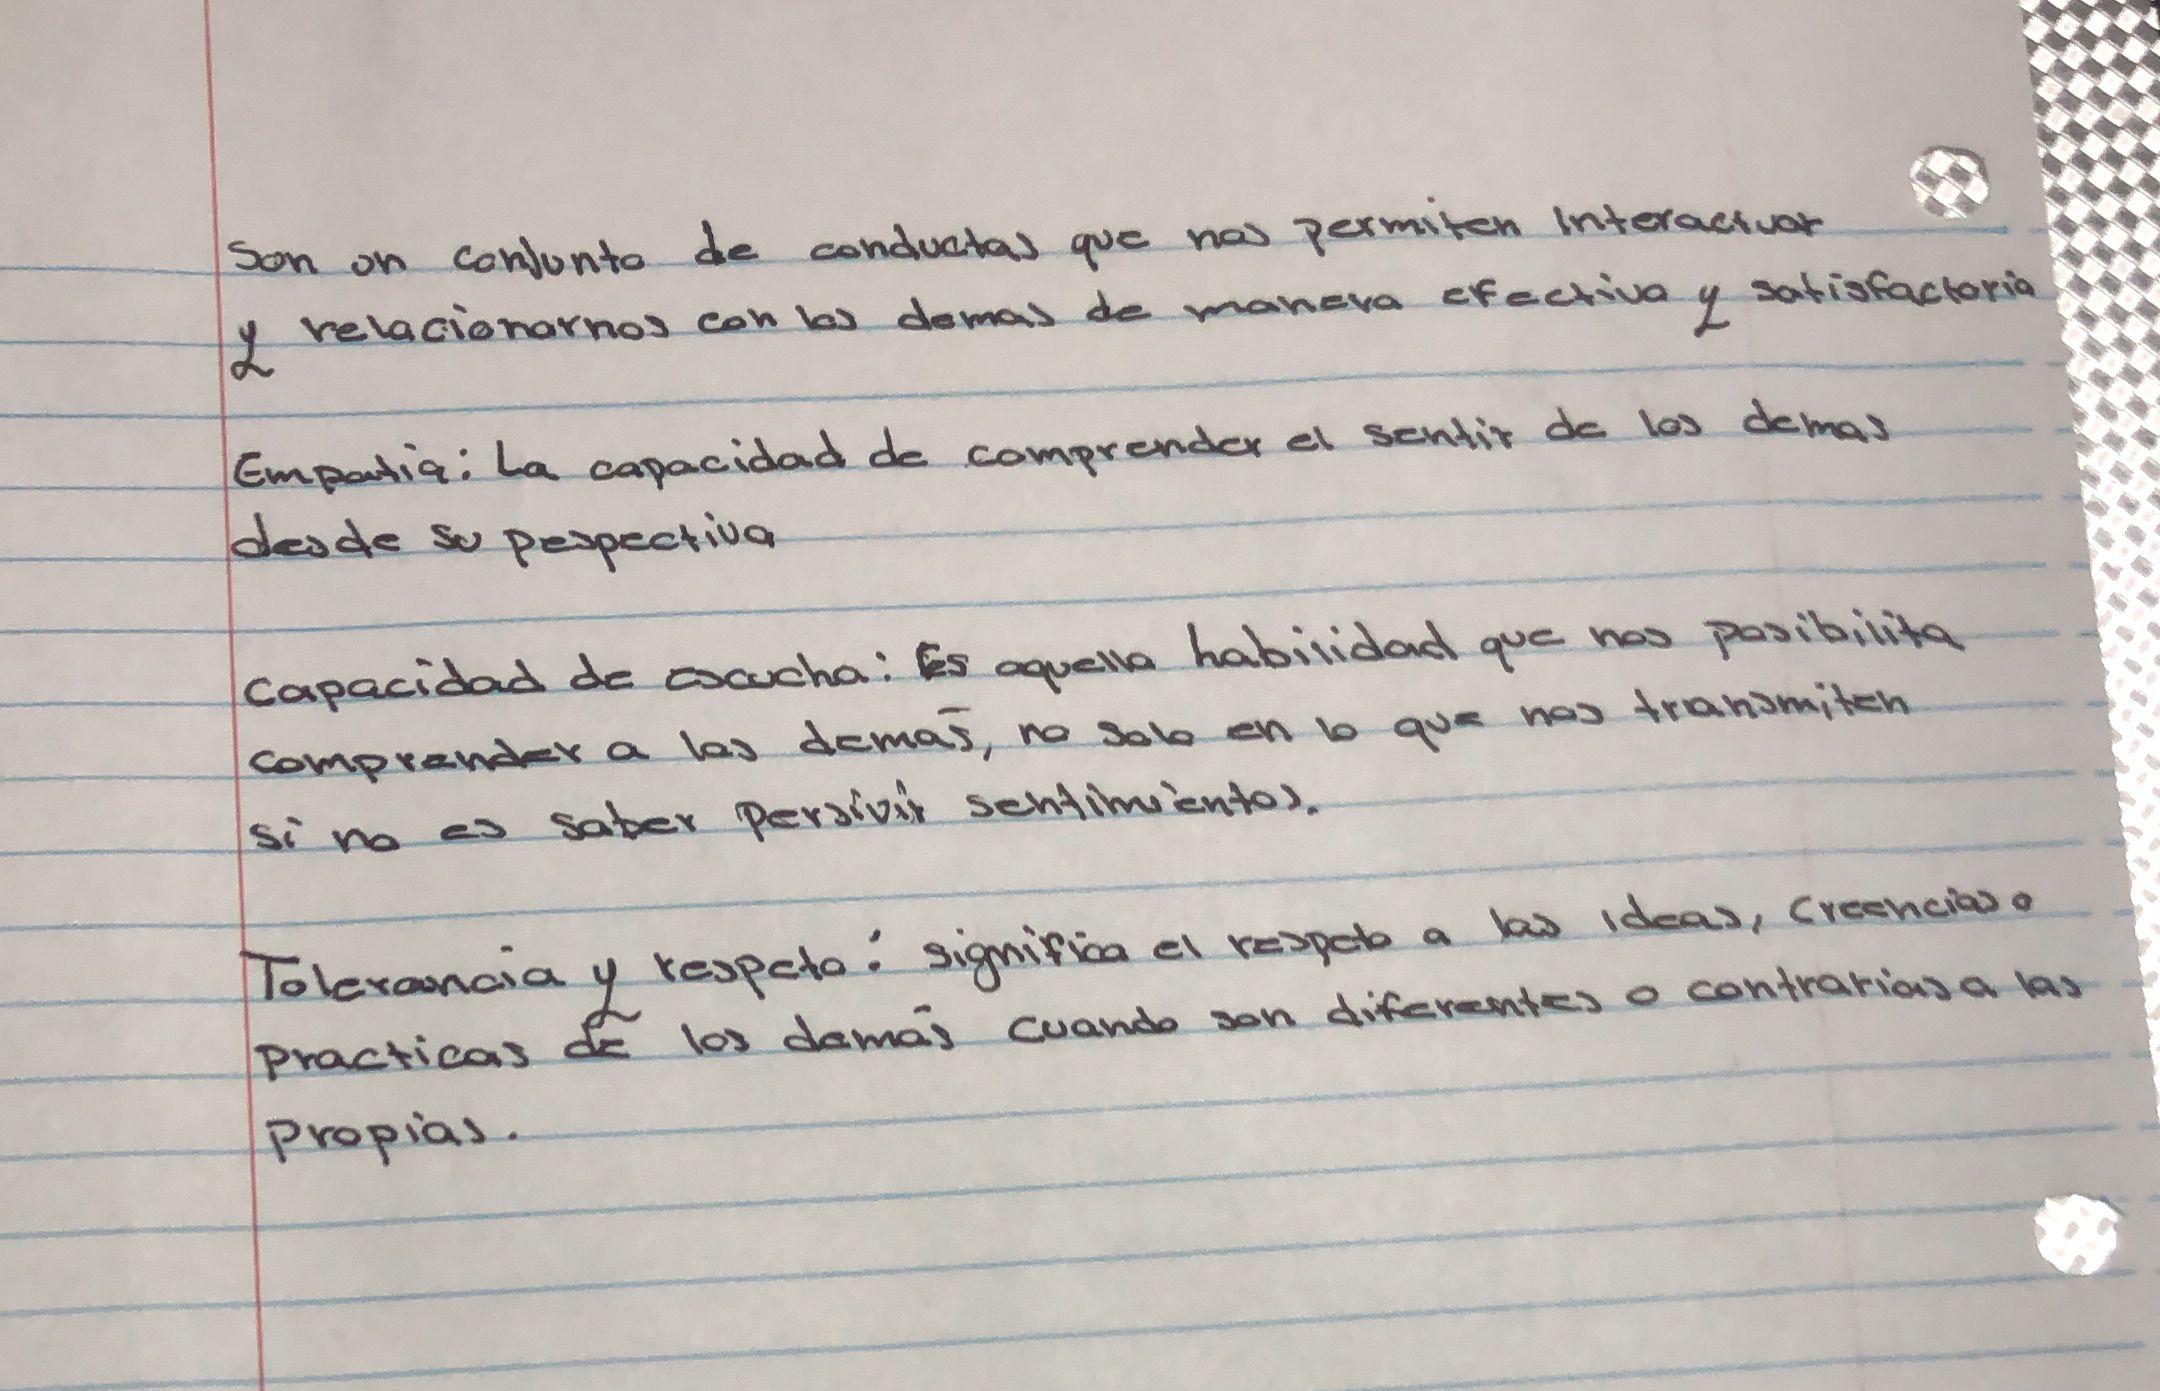 Son on conjunto de conductas que nos permiten Interactuar
y relacionarnos con los demas de manera efectiva y satisfactoria
Empatia: La capacidad de comprender el sentir de los demas
desde su pespectiva
Capacidad de escucha: Es aquella habilidad que nos posibilita
comprender a los demás, no solo en lo que nos transmiten
si no es saber persivir sentimientos.
Tolerancia y respeto: significa el respeto a las ideas, creencias o
practicas de los demás cuando son diferentes o contrarias a las
propias.